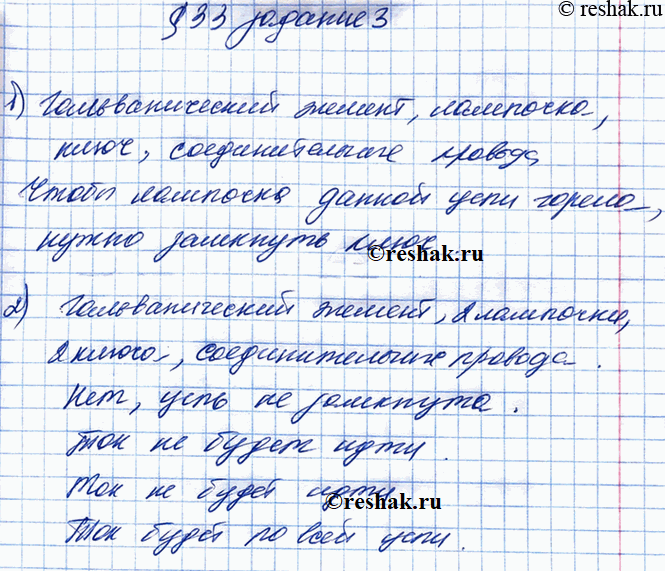 © reshak.ru
§33 задание 3
1) Гальванический элемент, лампочка,
ключ, соединительные провода
Чтобы лампочка данной цепи горела,
нужно замкнуть ключ
© reshak.ru
2) Гальванический элемент, 2 лампочки,
2 ключа, соединительные провода.
Нет, цепь не замкнута.
Ток не будет идти.
Ток не будет идти
© reshak.ru
Ток будет по всей цепи.